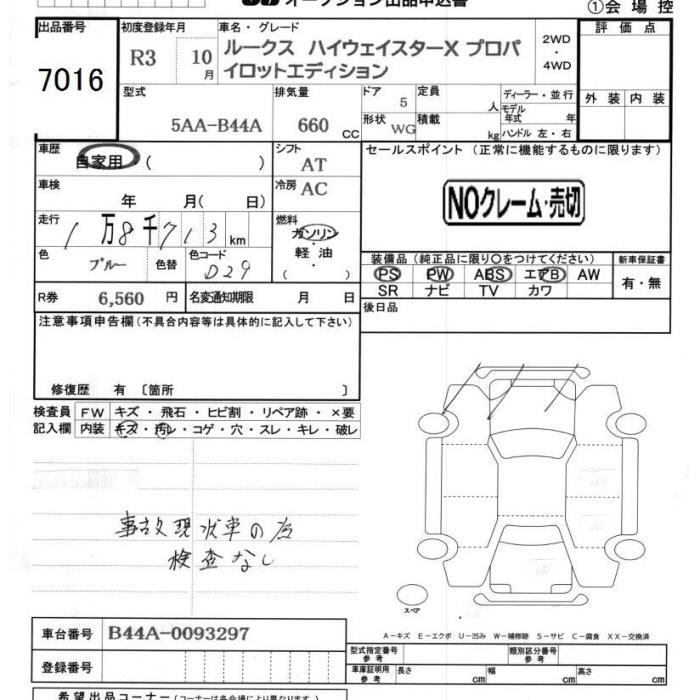 オークション出品申込書
①会場控
出品番号
7016
初度登録年月
R3 10月
車名・グレード
ルークス ハイウェイスターX プロパ
イロットエディション
2WD
・
4WD
評価点
外装 内装
型式
5AA-B44A
排気量
660 CC
ドア 5
形状 WG
定員 人
積載 kg
ディーラー・並行
モデル年式 年
ハンドル 左・右
車歴
自家用 ( )
シフト
AT
車検
年 月( 日)
冷房 AC
走行
1万8千713 km
燃料
ガソリン
・
軽油
・
( )
色
ブルー
色替
色コード
D29
R券 6,560 円
名変通知期限 月 日
セールスポイント (正常に機能するものに限ります)
NOクレーム・売切
装備品 (純正品に限り○をつけてください)
PS PW ABS エアB AW
SR ナビ TV カワ
新車保証書
有・無
後日品
注意事項申告欄 (不具合内容等は具体的に記入して下さい)
修復歴 有 〔箇所 〕
検査員
記入欄
FW キズ・飛石・ヒビ割・リペア跡・×要
内装 キズ・汚レ・コゲ・穴・スレ・キレ・破レ
事故現状車の為
検査なし
スペア
A-キズ E-エクボ U-凹み W-補修跡 S-サビ C-腐食 XX-交換済
車台番号 B44A-0093297
登録番号
型式指定番号
参考
類別区分番号
参考
車庫証明用
参考
長さ cm 幅 cm 高さ cm
希望出品コーナー (コーナーは各会場で異なります)